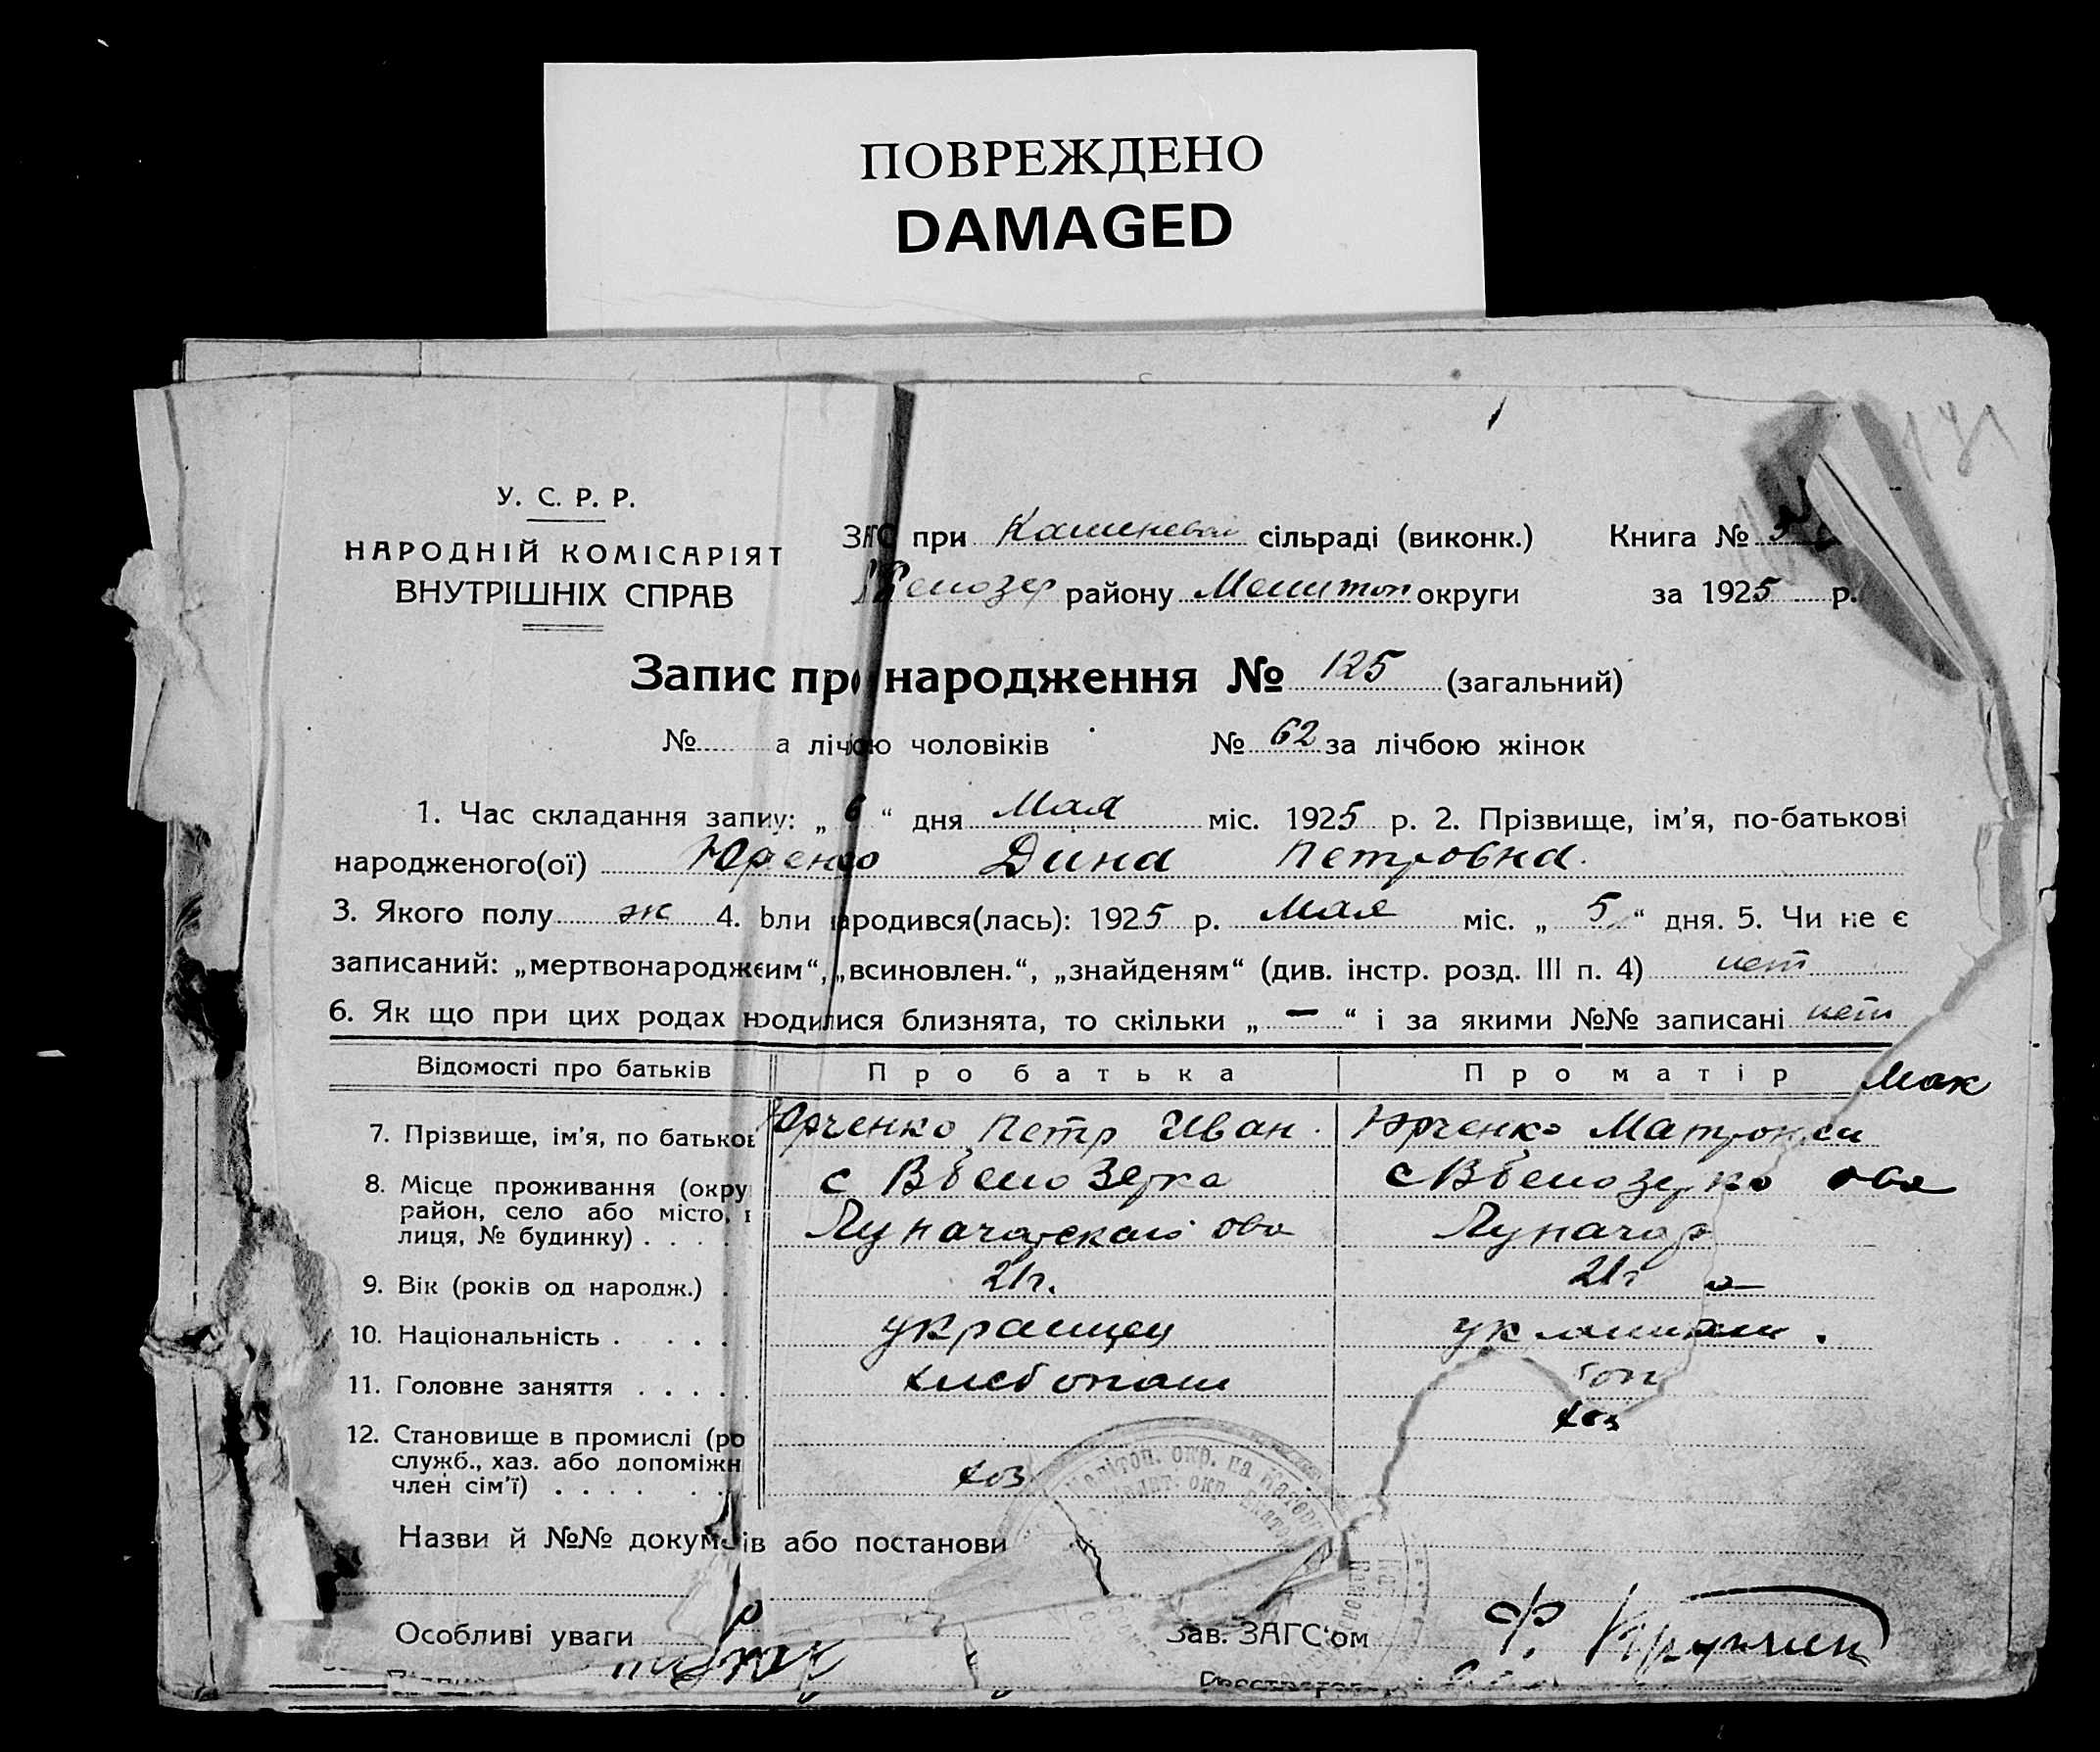 ПОВРЕЖДЕНО
DAMAGED
У. С. Р. Р.
НАРОДНІЙ КОМІСАРІЯТ
ВНУТРІШНІХ СПРАВ
ЗАГС при сільраді (виконк.) Книга №
району Мелитоп округи за 1925 р.
Запис про народження № 125 (загальний)
№ а лічбою чоловіків № 62 за лічбою жінок
1. Час складання запису: „ 6 “ дня Мая міс. 1925 р. 2. Прізвище, ім'я, по-батькові
народженого(ої) Юрченко Дина Петровна.
3. Якого полу ж 4. Коли народився(лась): 1925 р. Мая міс. „ 5 “ дня. 5. Чи не є
записаний: „мертвонародженим“, „всиновлен.“, „знайденям“ (див. інстр. розд. III п. 4) нет
6. Як що при цих родах народилися близнята, то скільки „ — “ і за якими №№ записані нет
Відомості про батьків Про батька Про матір Мак
7. Прізвище, ім'я, по батькові Юрченко Петр Иван. Юрченко Матрона
8. Місце проживання (окру с В Белозерка с В Белозерка ова
район, село або місто,
лиця, № будинку) . . . . Луначарского ова Луначар
9. Вік (років од народж.) . 21г. 21г
10. Національність . . . . украинец
11. Головне заняття . . . . . хлебопаш
хоз
12. Становище в промислі (ро
служб., хаз. або допоміжн
член сім'ї) . . . . . . . хоз
Назви й №№ документів або постанови
Особливі уваги Зав. ЗАГС'ом Ф.